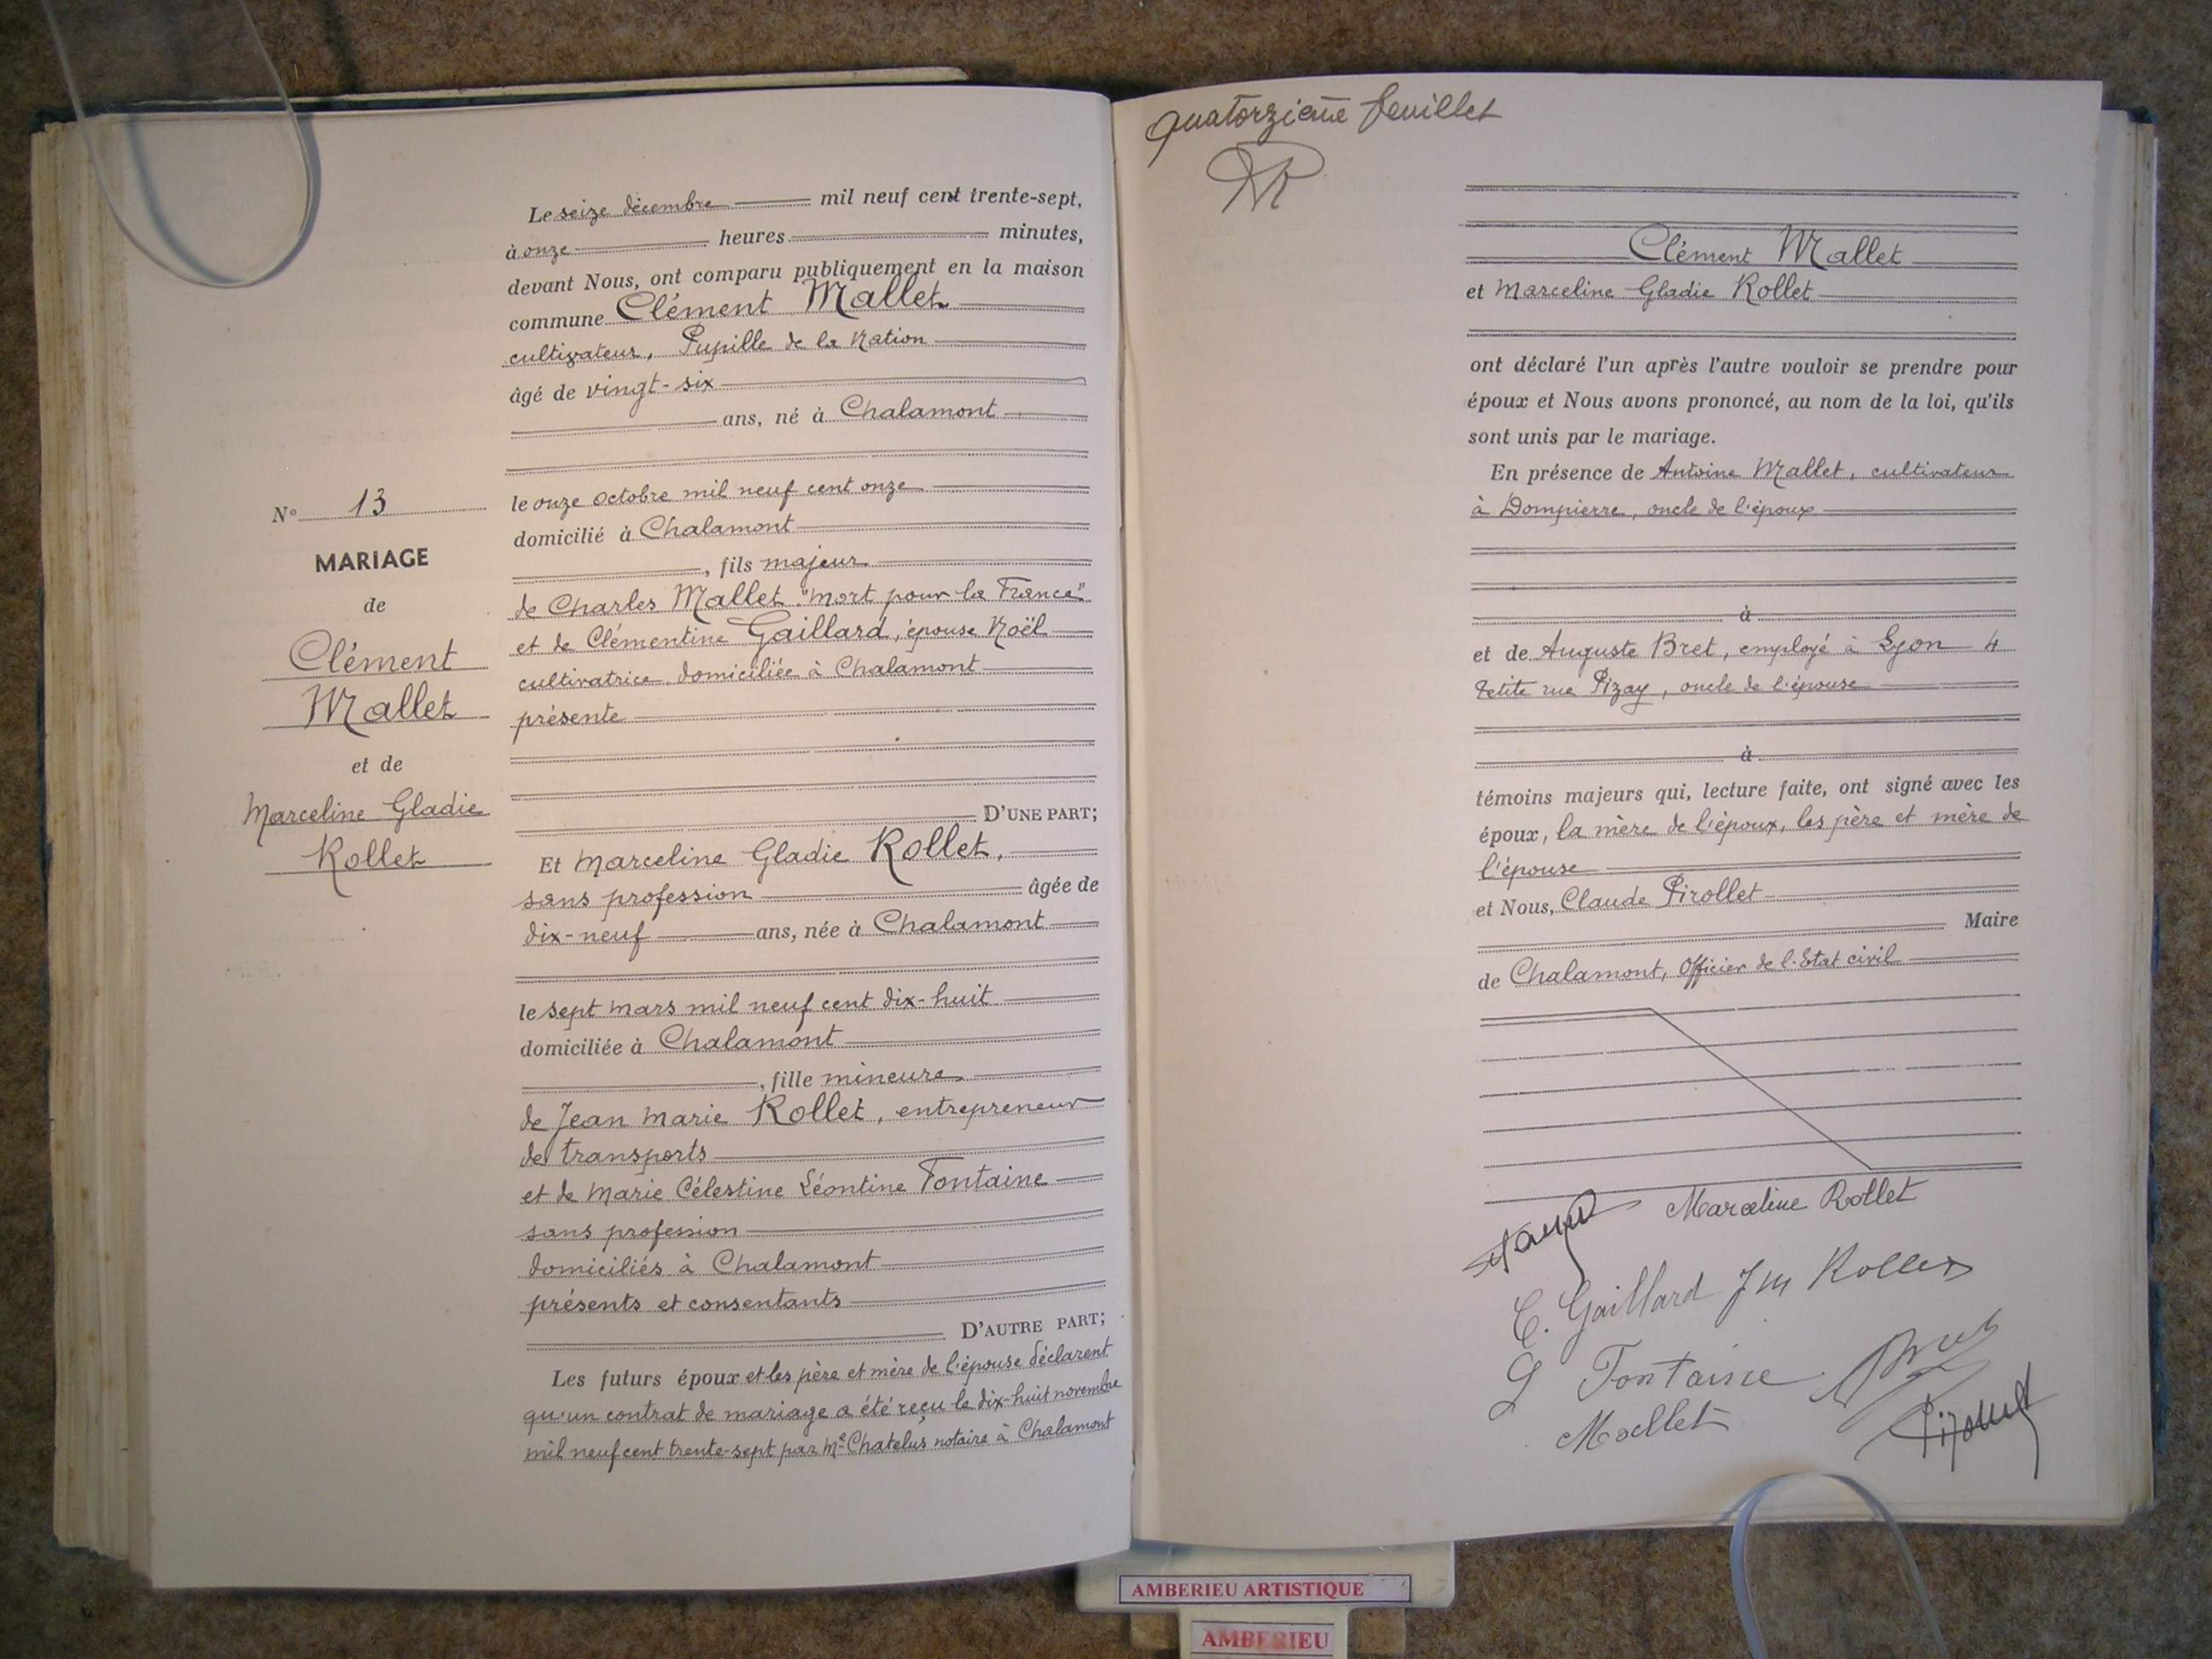 Le seize décembre mil neuf cent trente-sept,
à onze heures minutes,
devant Nous, ont comparu publiquement en la maison
commune Clément Mallet
cultivateur, Pupille de la Nation
âgé de vingt-six
ans, né à Chalamont
le onze octobre mil neuf cent onze
domicilié à Chalamont
, fils majeur
de Charles Mallet "mort pour la France"
et de Clémentine Gaillard, épouse Noël
cultivatrice domiciliée à Chalamont
présente
D'UNE PART;
Et Marceline Gladie Rollet,
sans profession âgée de
dix-neuf ans, née à Chalamont
le sept mars mil neuf cent dix-huit
domiciliée à Chalamont
, fille mineure
de Jean Marie Rollet, entrepreneur
de transports
et de Marie Célestine Léontine Fontaine
sans profession
domiciliés à Chalamont
présents et consentants
D'AUTRE PART;
Les futurs époux et les père et mère de l'épouse déclarent
qu'un contrat de mariage a été reçu le dix-huit novembre
mil neuf cent trente-sept par Me Chatelus notaire à Chalamont
N° 13
MARIAGE
de
Clément
Mallet
et de
Marceline Gladie
Rollet
quatorzième feuillet
Clément Mallet
et Marceline Gladie Rollet
ont déclaré l'un après l'autre vouloir se prendre pour
époux et Nous avons prononcé, au nom de la loi, qu'ils
sont unis par le mariage.
En présence de Antoine Mallet, cultivateur
à Dompierre, oncle de l'époux
à
et de Auguste Bret, employé à Lyon 4
Petite rue Pizay, oncle de l'épouse
à
témoins majeurs qui, lecture faite, ont signé avec les
époux, la mère de l'époux, les père et mère de
l'épouse
et Nous, Claude Pirollet
Maire
de Chalamont, Officier de l'Etat civil
Marceline Rollet
C. Gaillard JM Rollet
Fontaine
Mallet
AMBERIEU ARTISTIQUE
AMBERIEU